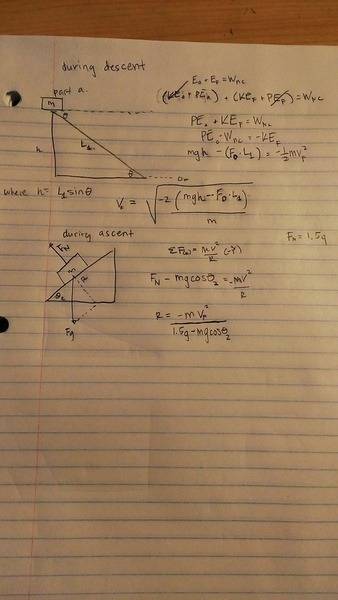 during descent
part a.
E₀ + E_F = W_NC
(KE₀ + PE₀) + (KE_F + PE_F) = W_NC
PE₀ + KE_F = W_NC
PE₀ - W_NC = -KE_F
mgh - (F_D · L₁) = -½mv_F²
m
θ
L₁
h
θ
where h = L₁ sinθ
V_F = √(-2(mgh - F_D · L₁)/m)
during ascent
ΣF(c) = mv²/R (-r̂)
F_N = 1.5g
F_N
m
R
θ₂
Fg
F_N - mgcosθ₂ = -mv²/R
R = -mV_F²/(1.5g - mgcosθ₂)